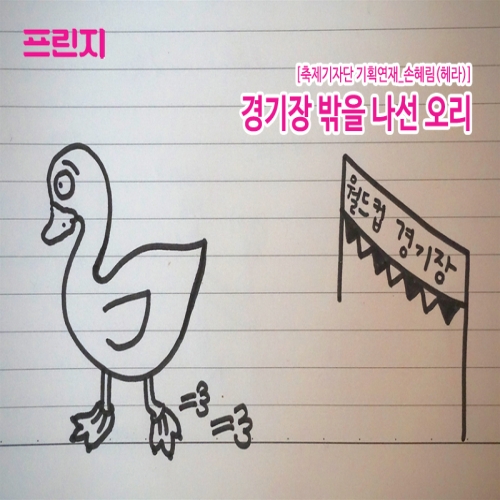 프린지
[축제기자단 기획연재_손혜림(헤라)]
경기장 밖을 나선 오리
월드컵 경기장